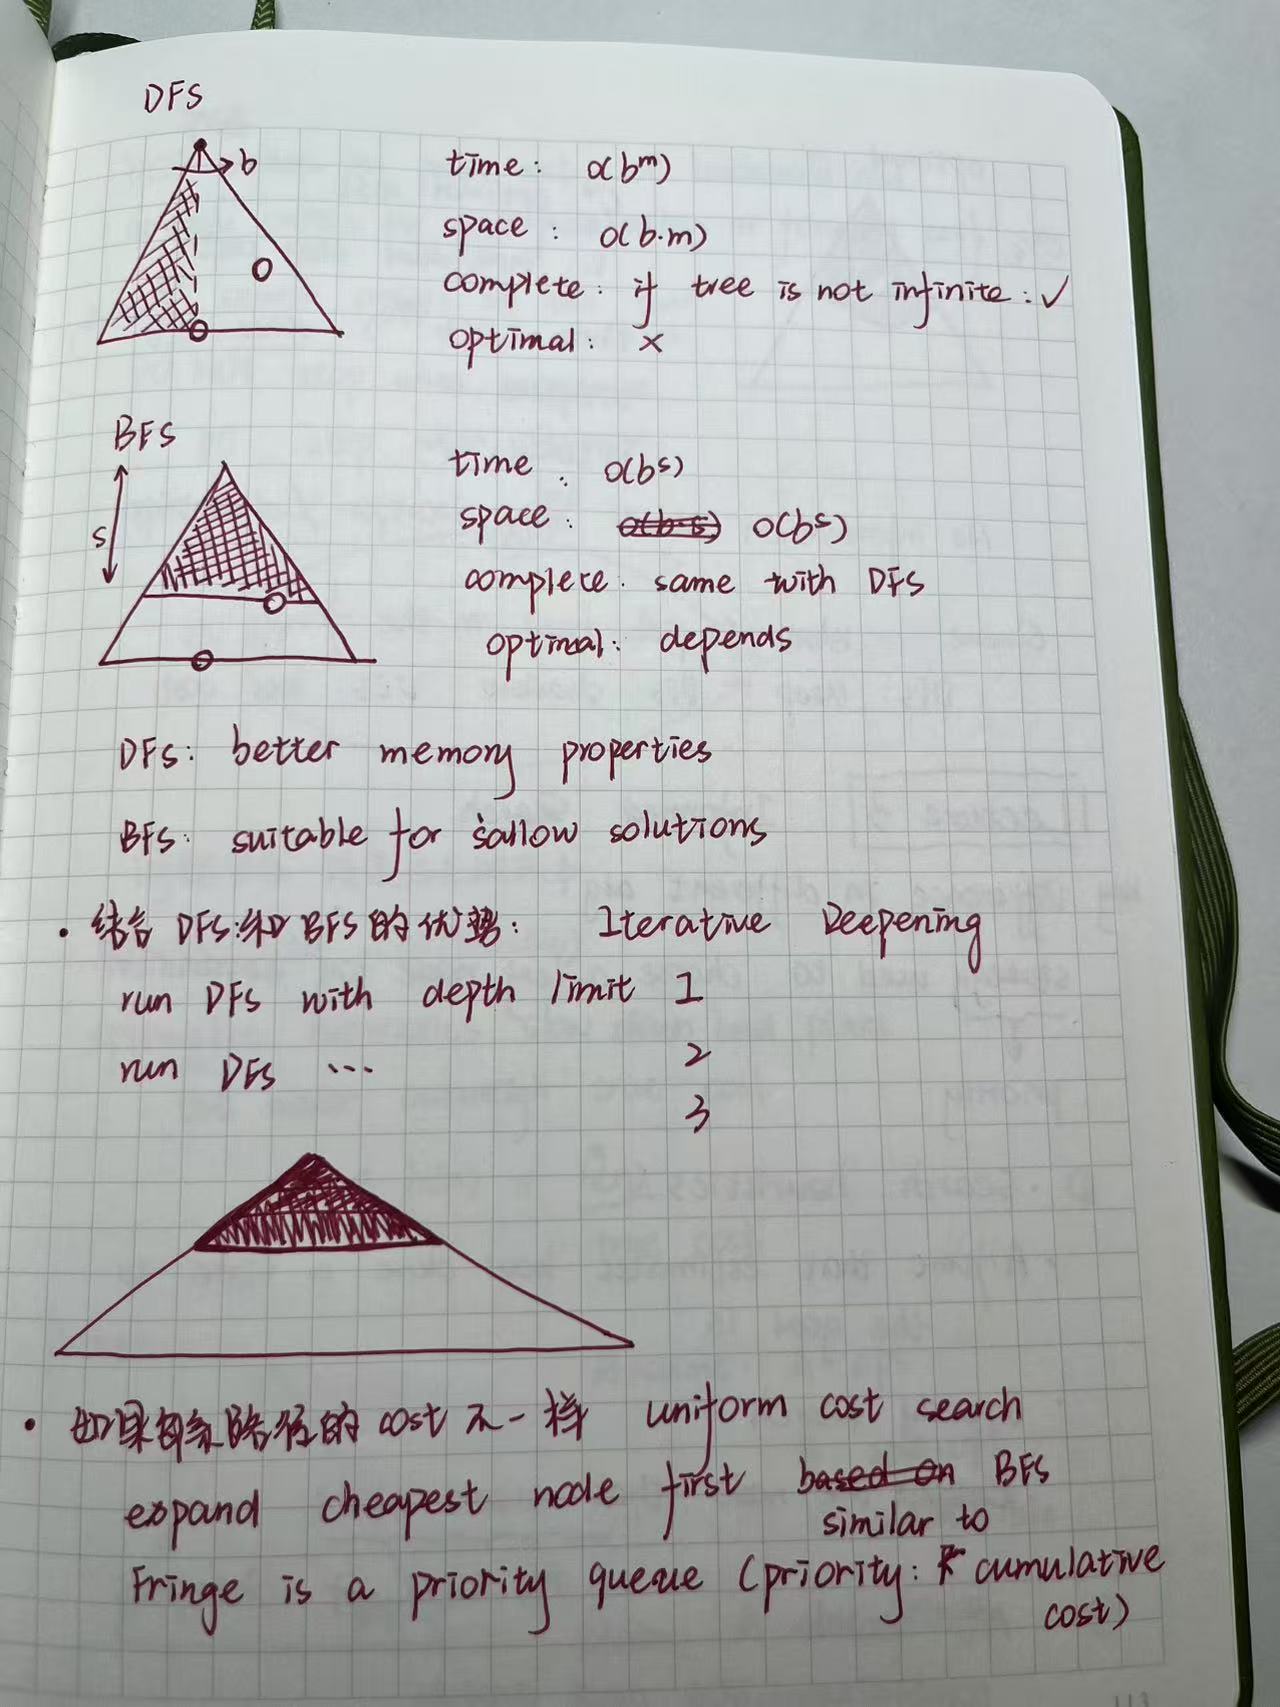 DFS
b
time: O(b^m)
space: O(b·m)
complete: if tree is not infinite: ✓
optimal: ×
BFS
s
time: O(b^s)
space: O(b·s) O(b^s)
complete: same with DFS
optimal: depends
DFS: better memory properties
BFS: suitable for sallow solutions
· 结合 DFS和BFS的优势: Iterative Deepening
run DFS with depth limit 1
run DFS ... 2
3
· 如果每条路径的cost不一样 uniform cost search
expand cheapest node first based on BFS
similar to
Fringe is a priority queue (priority: cumulative
cost)